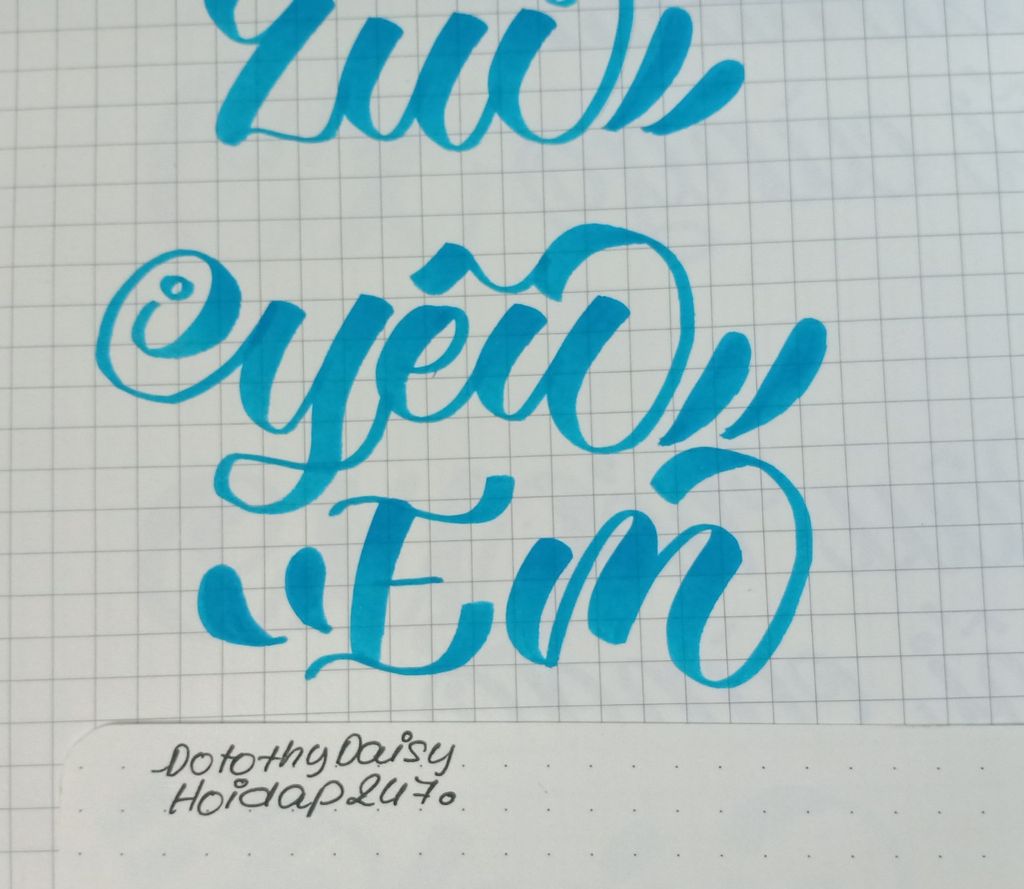 Zui
yêu
Em
Dotothy Daisy
Hoidap247.